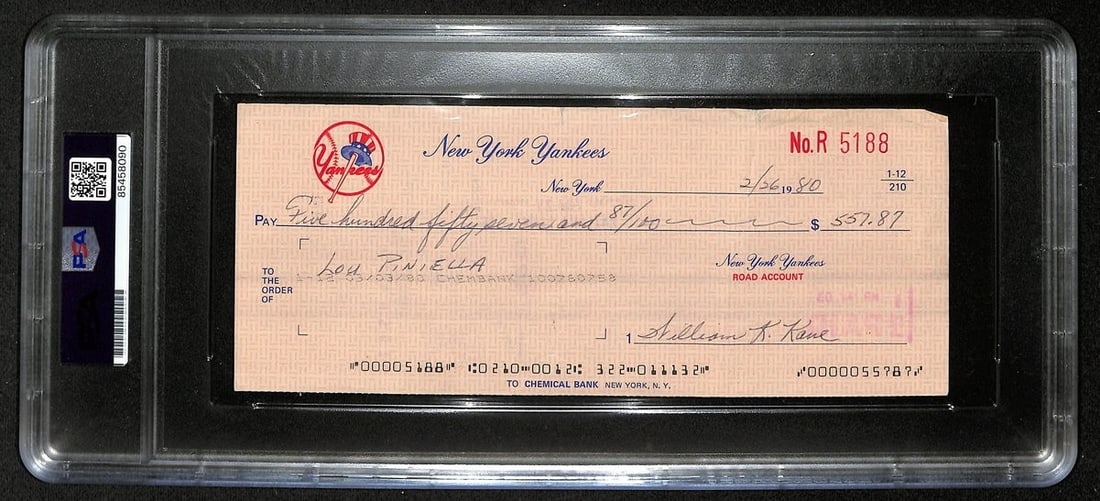 85458090
PSA
Yankees
New York Yankees
No.R 5188
New York 2/26 19 80
1-12
210
PAY Five hundred fifty seven and 87/100 $ 557.87
TO THE ORDER OF
Lou Piniella
1-12 03/03/80 CHEMBANK 100760758
New York Yankees
ROAD ACCOUNT
1 William K. Kane
⑈00005188⑈ ⑆0210⑉0012⑆ 322⑉011132⑈ ⑈0000055787⑈
TO CHEMICAL BANK NEW YORK, N. Y.